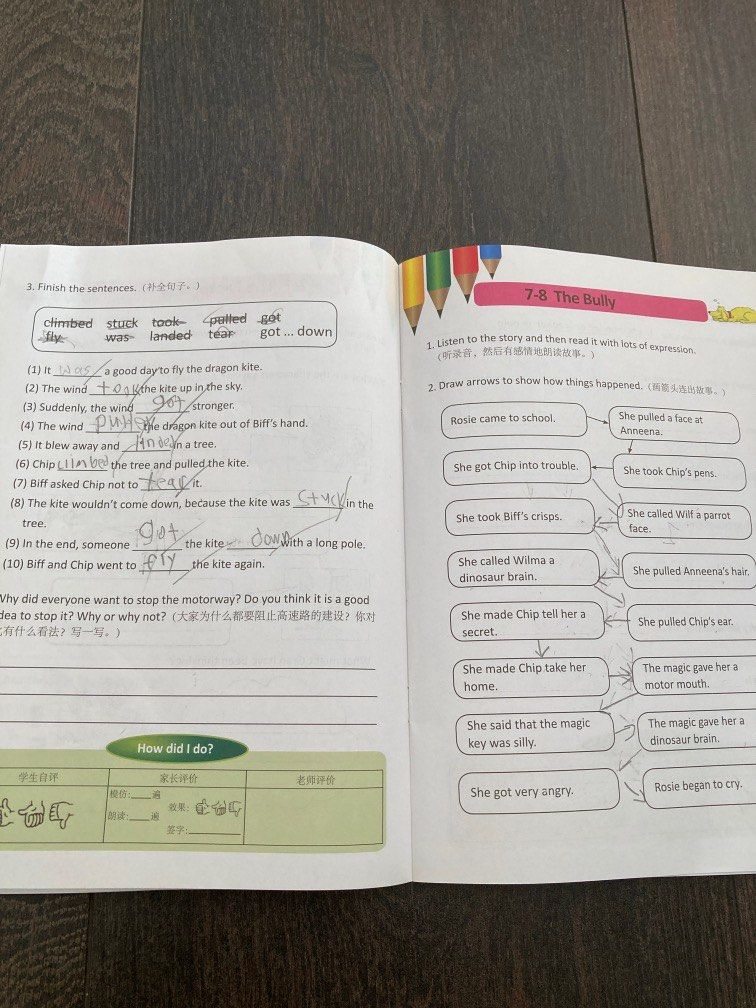 3. Finish the sentences.（补全句子。）
climbed stuck took pulled got
fly was landed tear got ... down
(1) It was a good day to fly the dragon kite.
(2) The wind took the kite up in the sky.
(3) Suddenly, the wind got stronger.
(4) The wind the dragon kite out of Biff's hand.
(5) It blew away and in a tree.
(6) Chip climbed the tree and pulled the kite.
(7) Biff asked Chip not to tear it.
(8) The kite wouldn't come down, because the kite was stuck in the
tree.
(9) In the end, someone got the kite down with a long pole.
(10) Biff and Chip went to fly the kite again.
Why did everyone want to stop the motorway? Do you think it is a good
idea to stop it? Why or why not?（大家为什么都要阻止高速路的建设？你对
有什么看法？写一写。）
How did I do?
学生自评 家长评价 老师评价
模仿:____遍
效果:
朗读:____遍
签字:________
7-8 The Bully
1. Listen to the story and then read it with lots of expression.
（听录音，然后有感情地朗读故事。）
2. Draw arrows to show how things happened.（画箭头连出故事。）
Rosie came to school.
She pulled a face at
Anneena.
She got Chip into trouble.
She took Chip's pens.
She took Biff's crisps.
She called Wilf a parrot
face.
She called Wilma a
dinosaur brain.
She pulled Anneena's hair.
She made Chip tell her a
secret.
She pulled Chip's ear.
She made Chip take her
home.
The magic gave her a
motor mouth.
She said that the magic
key was silly.
The magic gave her a
dinosaur brain.
She got very angry.
Rosie began to cry.